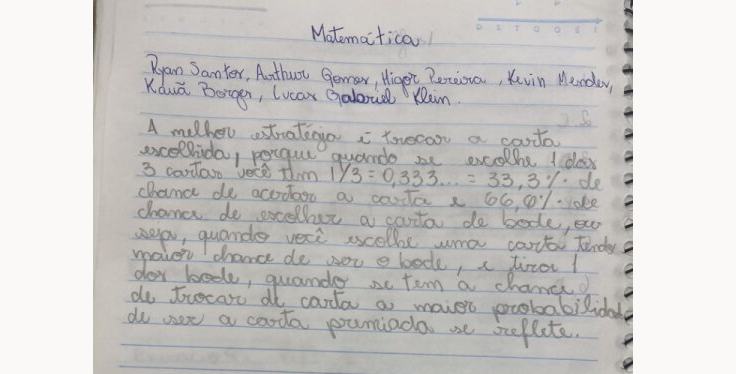 Matemática
D S T Q Q S S
Ryan Santos, Arthur Gomes, Higor Pereira, Kevin Mendes,
Kauã Borger, Lucas Gabriel Klein.
A melhor estratégia é trocar a carta
escolhida, porque quando se escolhe 1 das
3 cartas você tem 1/3 = 0,333... = 33,3% de
chance de acertar a carta e 66,6% de
chance de escolher a carta de bode, ou
seja, quando você escolhe uma carta tendo
maior chance de ser o bode, e tirar 1
dos bode, quando se tem a chance
de trocar de carta a maior probabilidade
de ser a carta premiada se reflete.